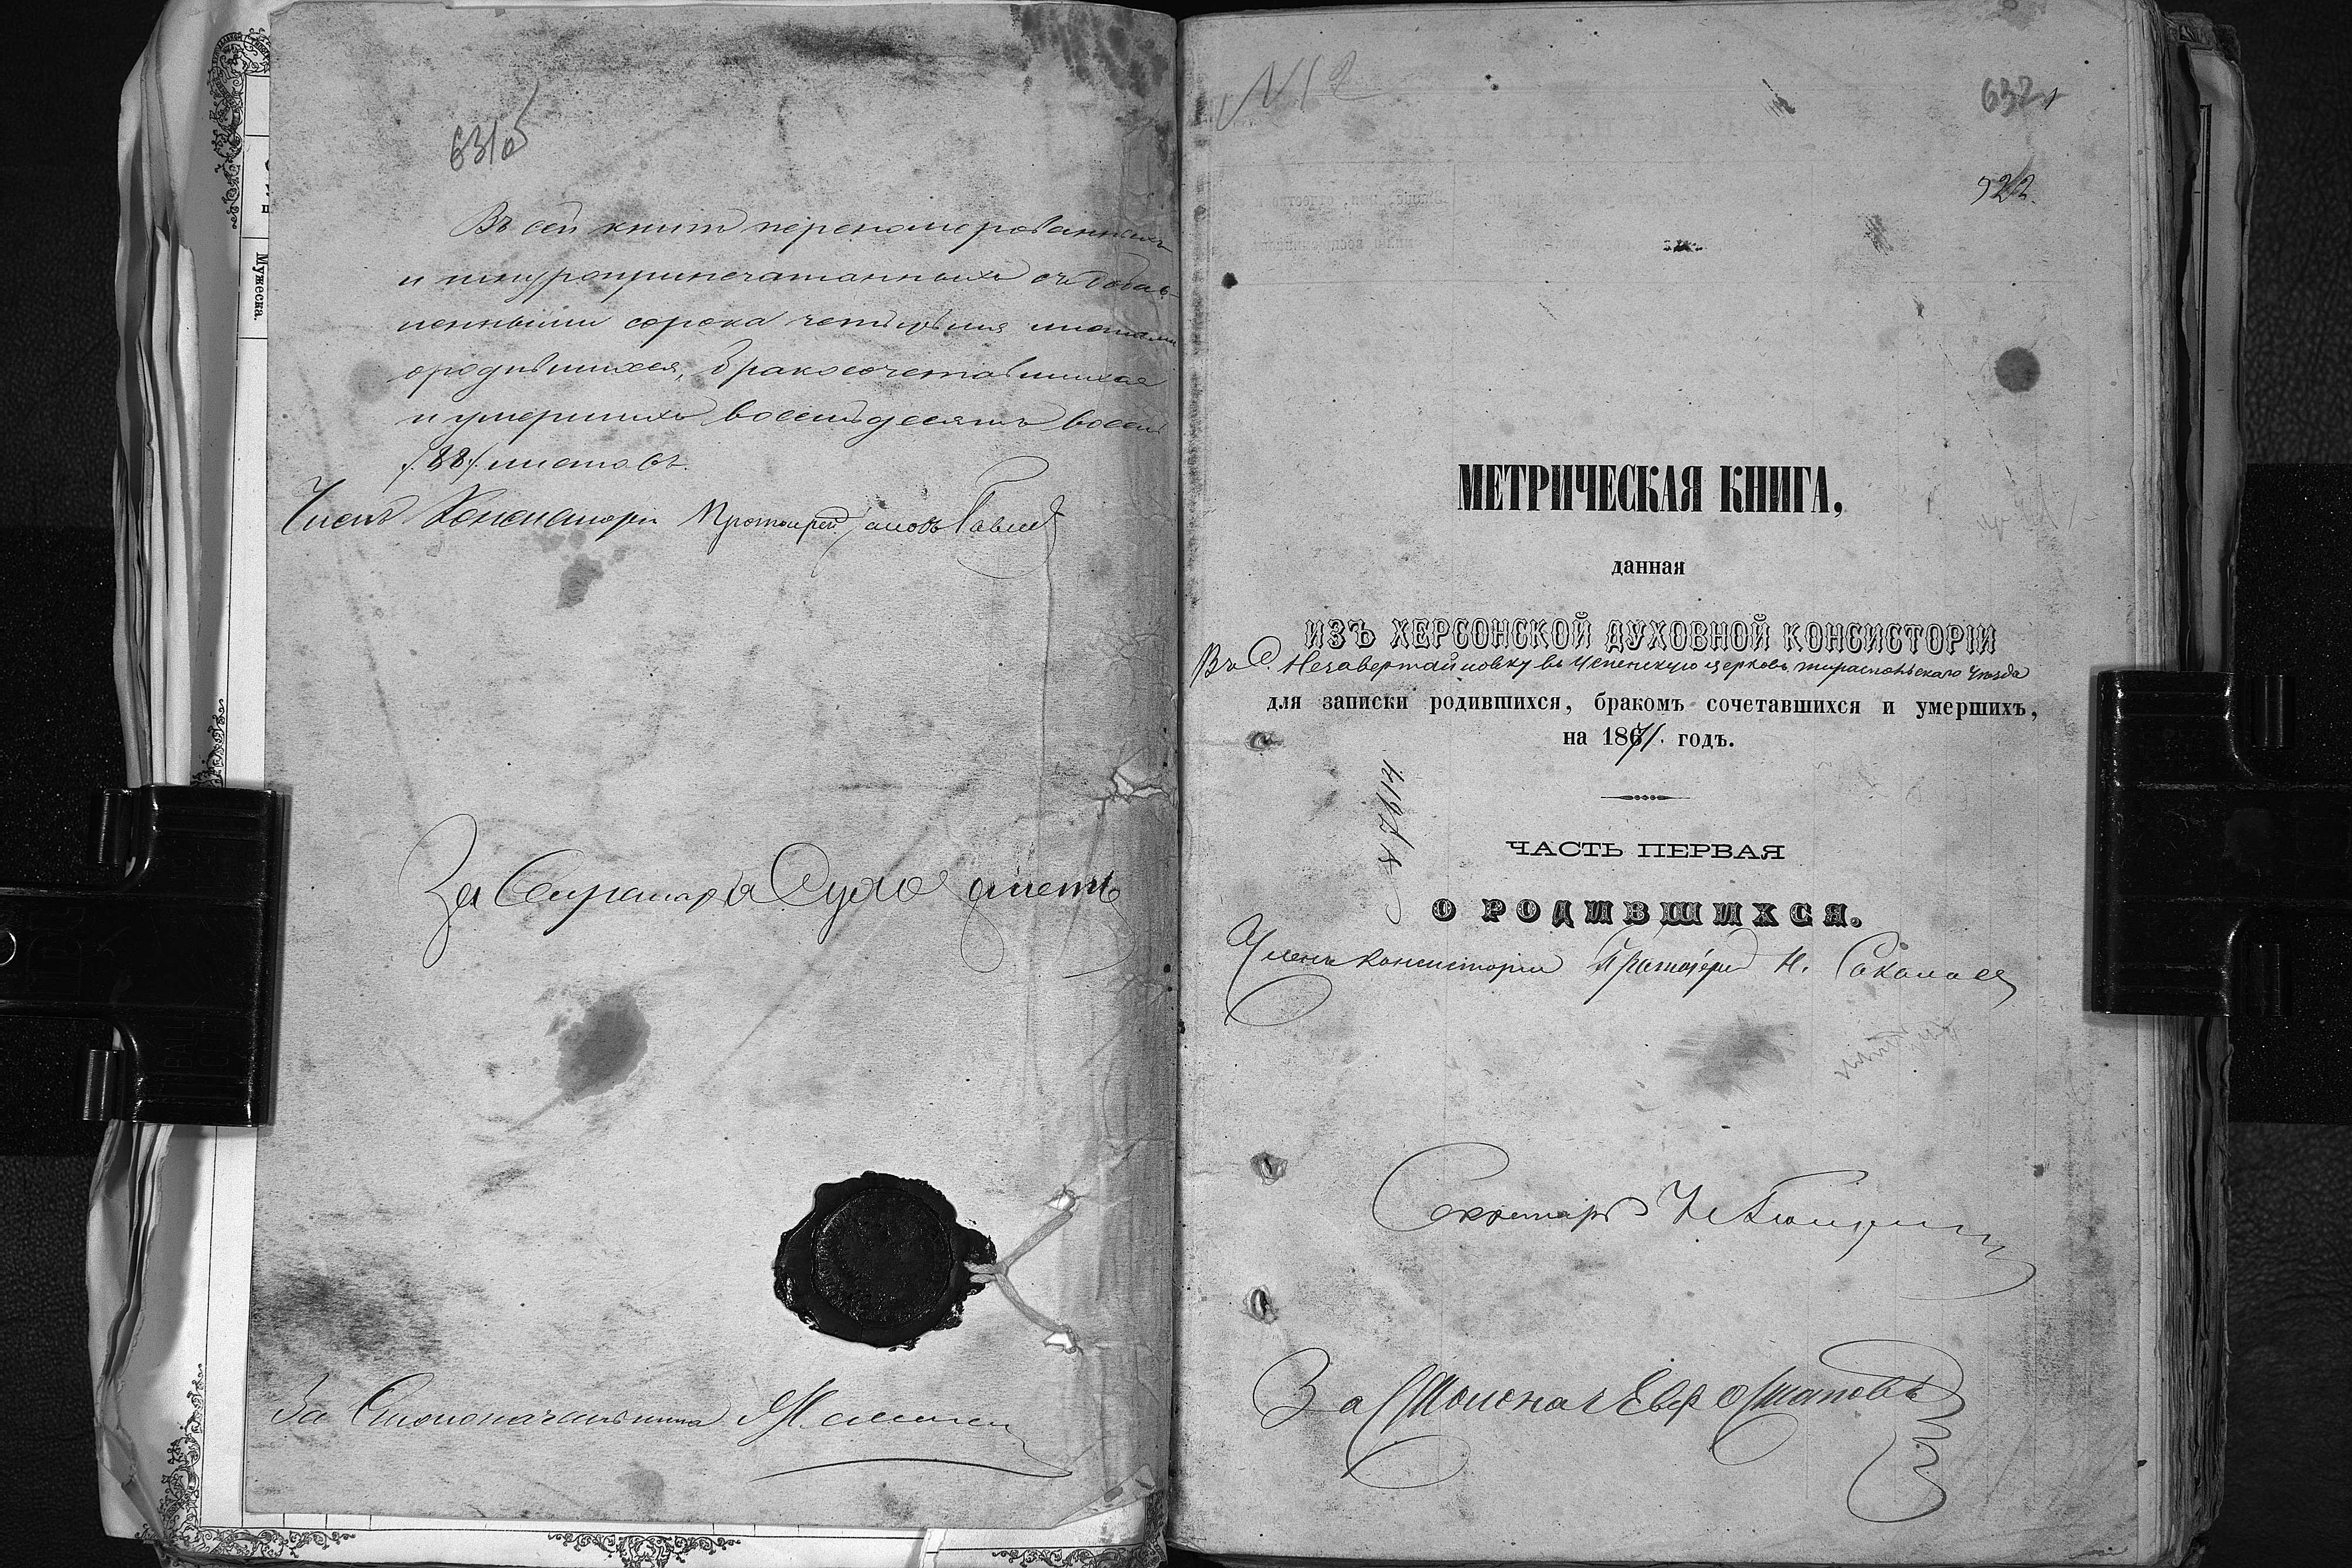 631об
Въ сей книгѣ переномерованныхъ
и шнуроприпечатанныхъ съ добав-
ленными сорока четырьмя листами
о родившихся, бракосочетавшихся
и умершихъ восемьдесятъ восемь
/88/ листовъ.
Членъ Консисторіи Протоіерей Павлов
За Секретаря
За Столоначальника
Мужеска.
N 12
632
1
522.
МЕТРИЧЕСКАЯ КНИГА,
данная
ИЗЪ ХЕРСОНСКОЙ ДУХОВНОЙ КОНСИСТОРІИ
Въ С. Незавертайловку въ Успенскую церковь тираспольскаго Уѣзда
для записки родившихся, бракомъ сочетавшихся и умершихъ,
на 1871. годъ.
№ 7614
ЧАСТЬ ПЕРВАЯ
О РОДИВШИХСЯ.
Членъ Консисторіи Протоіерей Н. Соколовъ
Секретарь
За Столонач